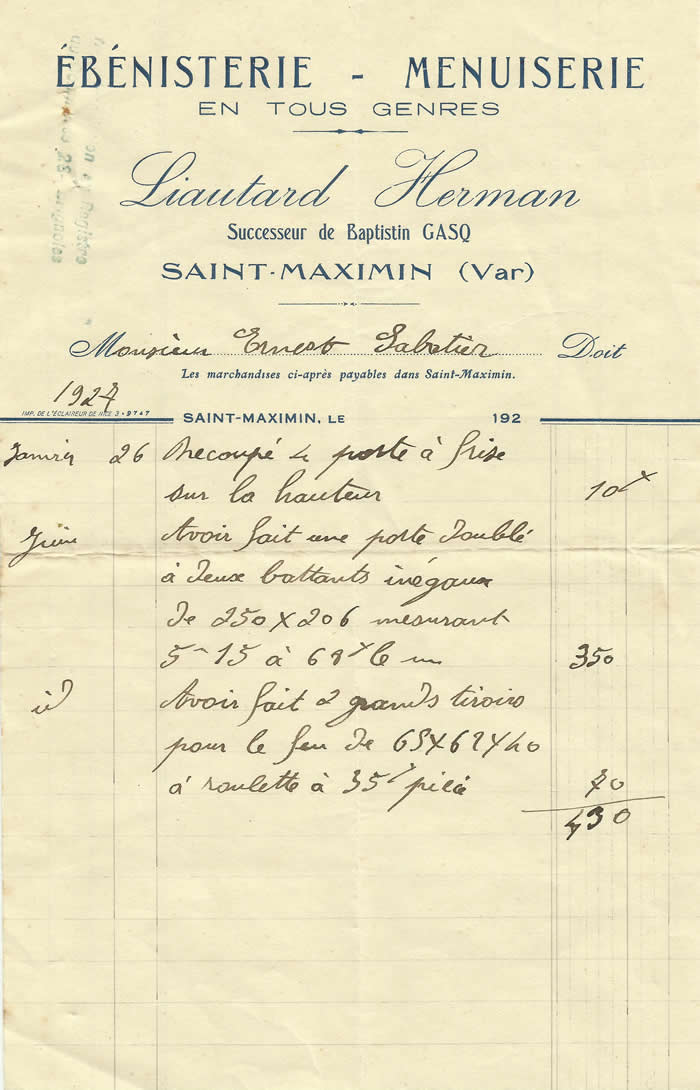 ÉBÉNISTERIE - MENUISERIE
EN TOUS GENRES
Liautard Herman
Successeur de Baptistin GASQ
SAINT-MAXIMIN (Var)
Monsieur Ernest Sabatier Doit
Les marchandises ci-après payables dans Saint-Maximin.
1927
IMP. DE L'ÉCLAIREUR DE NICE 3-9747
SAINT-MAXIMIN, LE 192
Janvier 26 Recoupé 4 porte à frise
sur la hauteur 10 f
Juin Avoir fait une porte doublé
à deux battants inégaux
de 250 x 206 mesurant
5 m 15 à 68 f le m 350
id Avoir fait 2 grands tiroirs
pour le feu de 65 x 62 x 40
à roulette à 35 f pièce 70
430